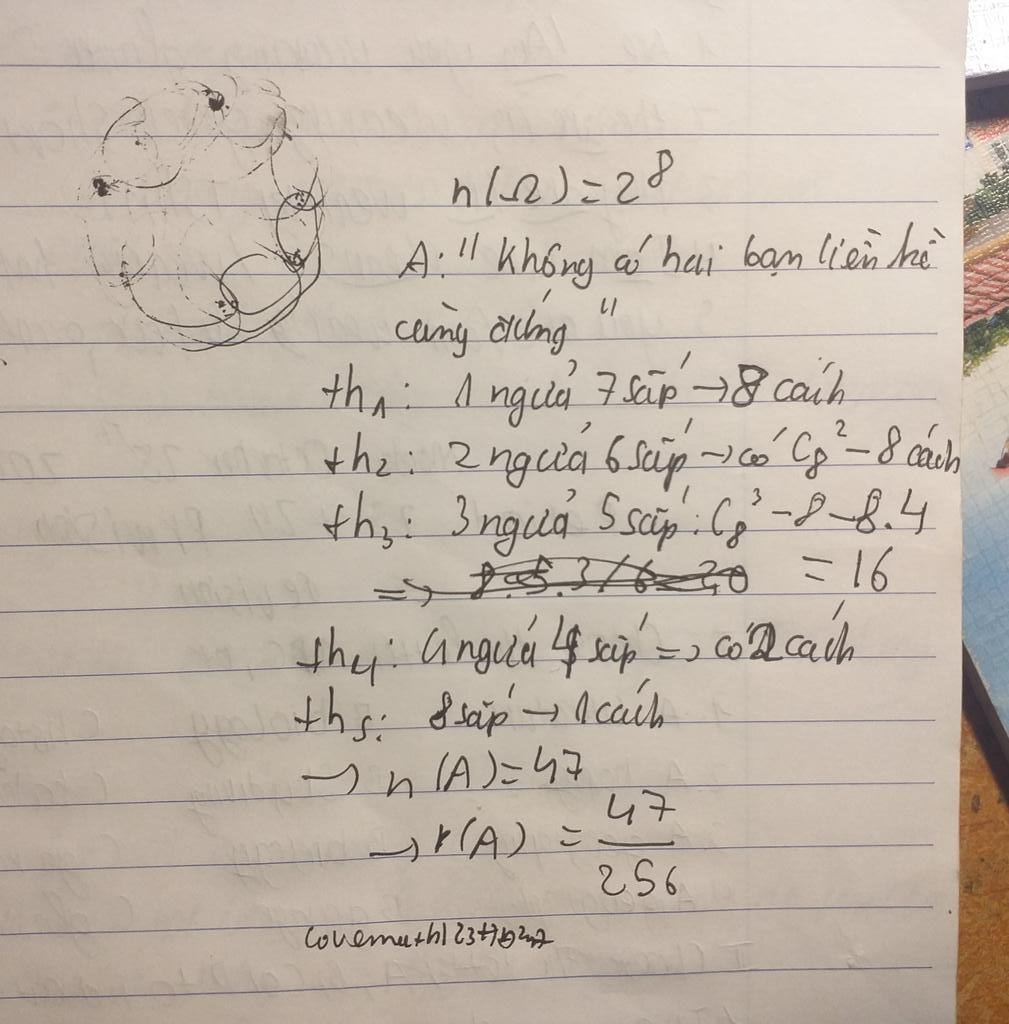 n(Ω) = 2⁸
A: " Không có hai bạn liền kề
cùng đứng "
th₁: 1 ngửa 7 sấp → 8 cách
th₂: 2 ngửa 6 sấp → có C₈² - 8 cách
th₃: 3 ngửa 5 sấp: C₈³ - 8 - 8.4
=> = 16
th₄: 4 ngửa 4 sấp => có 2 cách
th₅: 8 sấp → 1 cách
→ n(A) = 47
→ P(A) = 47/256